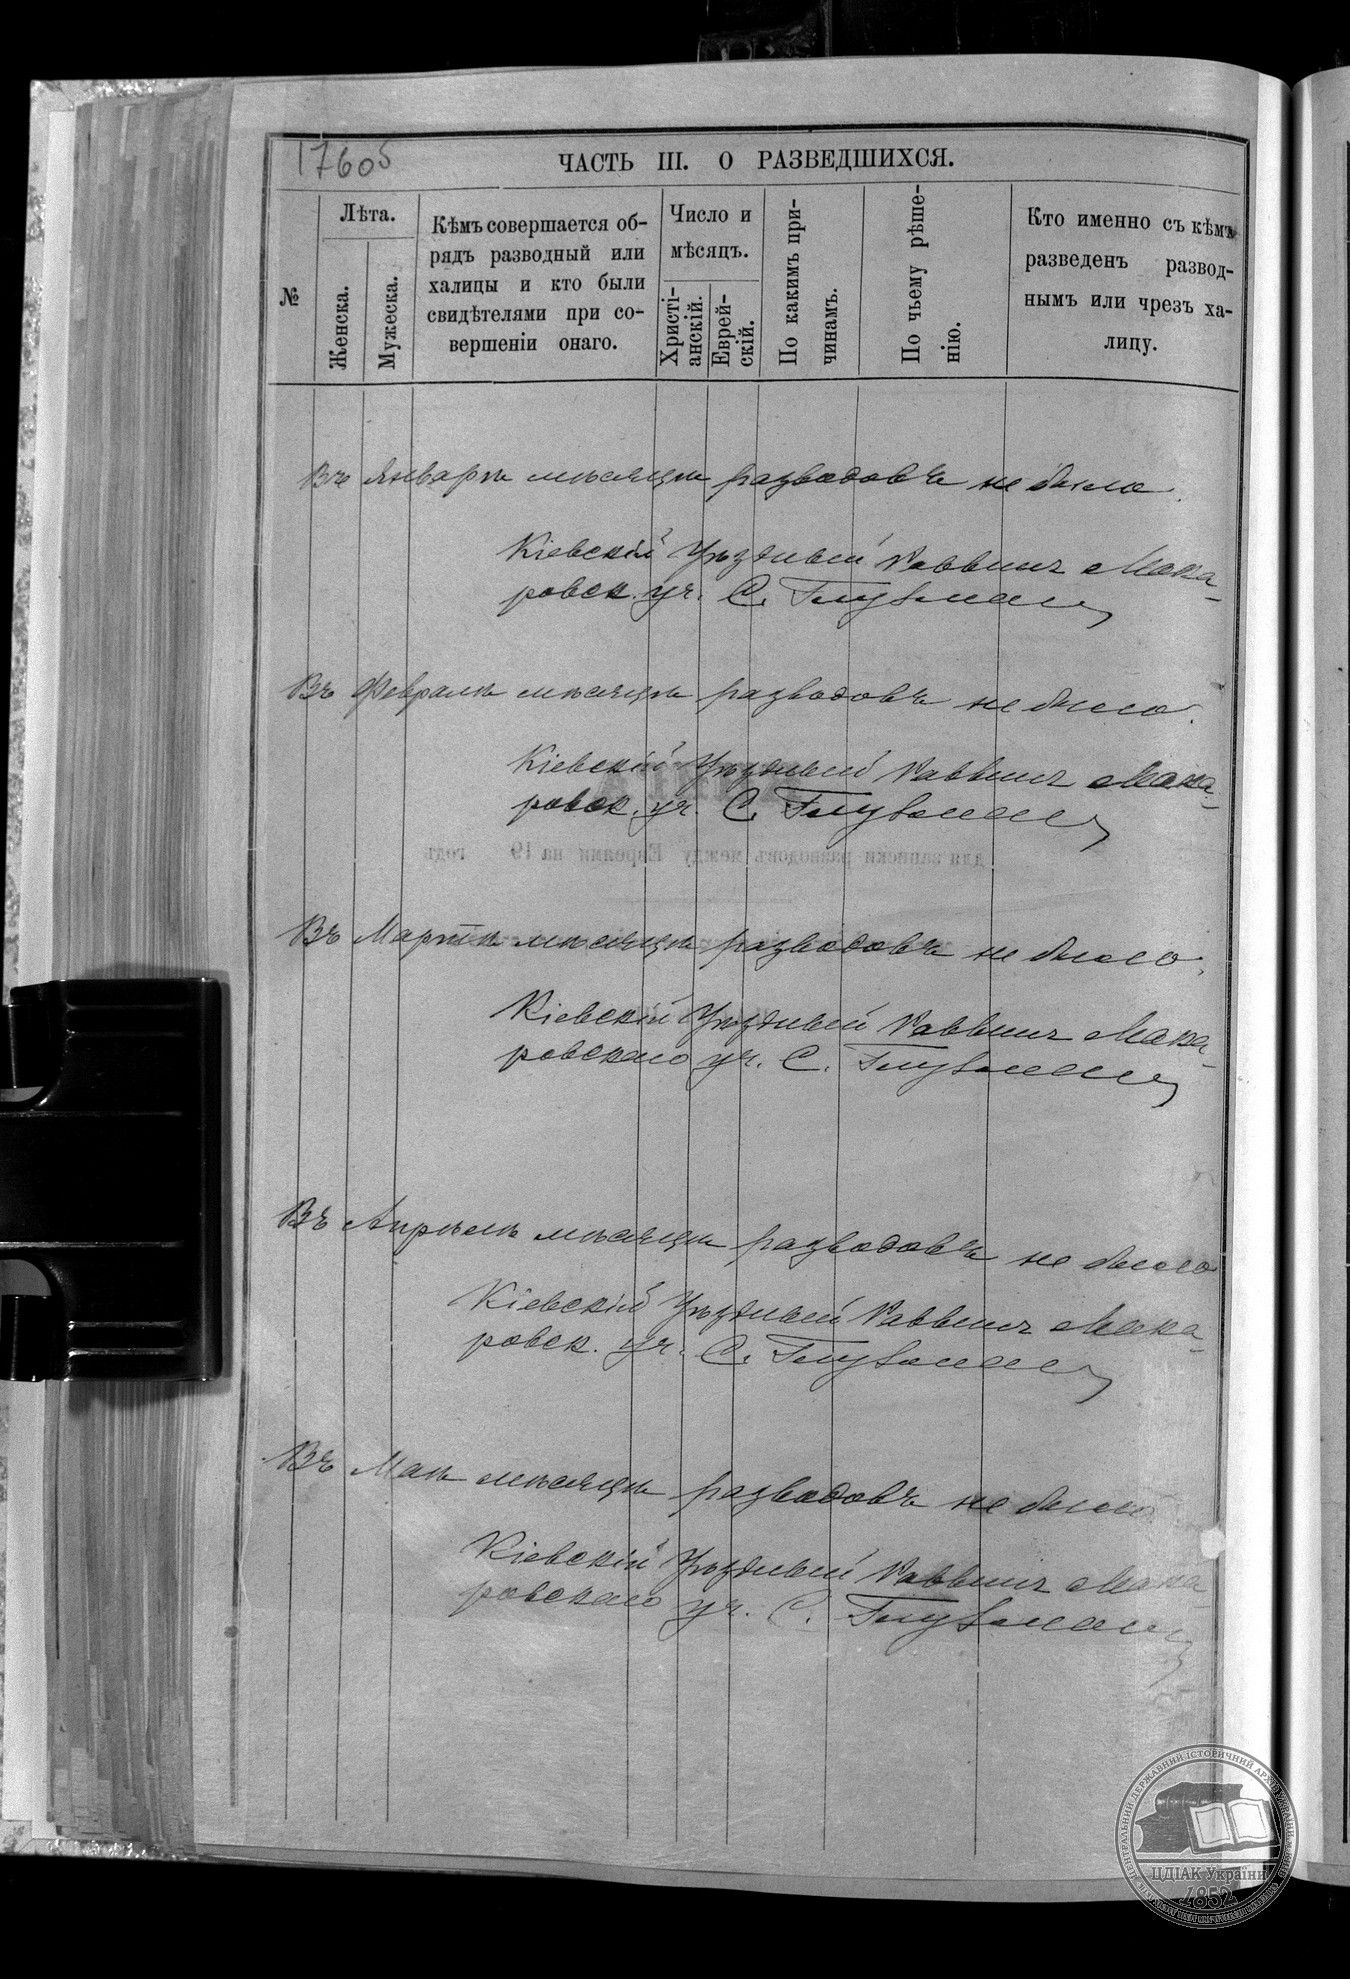 17605
ЧАСТЬ III. О РАЗВЕДШИХСЯ.
№
Лѣта.
Женска.
Мужеска.
Кѣмъ совершается об-
рядъ разводный или
халицы и кто были
свидѣтелями при со-
вершеніи онаго.
Число и
мѣсяцъ.
Христі-
анскій.
Еврей-
скій.
По какимъ при-
чинамъ.
По чьему рѣше-
нію.
Кто именно съ кѣмъ
разведенъ развод-
нымъ или чрезъ ха-
лицу.
Въ Январѣ мѣсяцѣ разводовъ не было.
Кіевскій Уѣздный Раввинъ Мака-
ровск. уч. С. Глузман
Въ Февралѣ мѣсяцѣ разводовъ не было.
Кіевскій Уѣздный Раввинъ Мака-
ровск. уч. С. Глузман
для записки разводовъ между Евреями на 19 годъ
Въ Мартѣ мѣсяцѣ разводовъ не было.
Кіевскій Уѣздный Раввинъ Мака-
ровскаго уч. С. Глузман
Въ Апрѣлѣ мѣсяцѣ разводовъ не было
Кіевскій Уѣздный Раввинъ Мака-
ровск. уч. С. Глузман
Въ Маѣ мѣсяцѣ разводовъ не было
Кіевскій Уѣздный Раввинъ Мака-
ровскаго уч. С. Глузман
ЦЕНТРАЛЬНИЙ ДЕРЖАВНИЙ ІСТОРИЧНИЙ АРХІВ УКРАЇНИ, М. КИЇВ
ЦДІАК України
1852